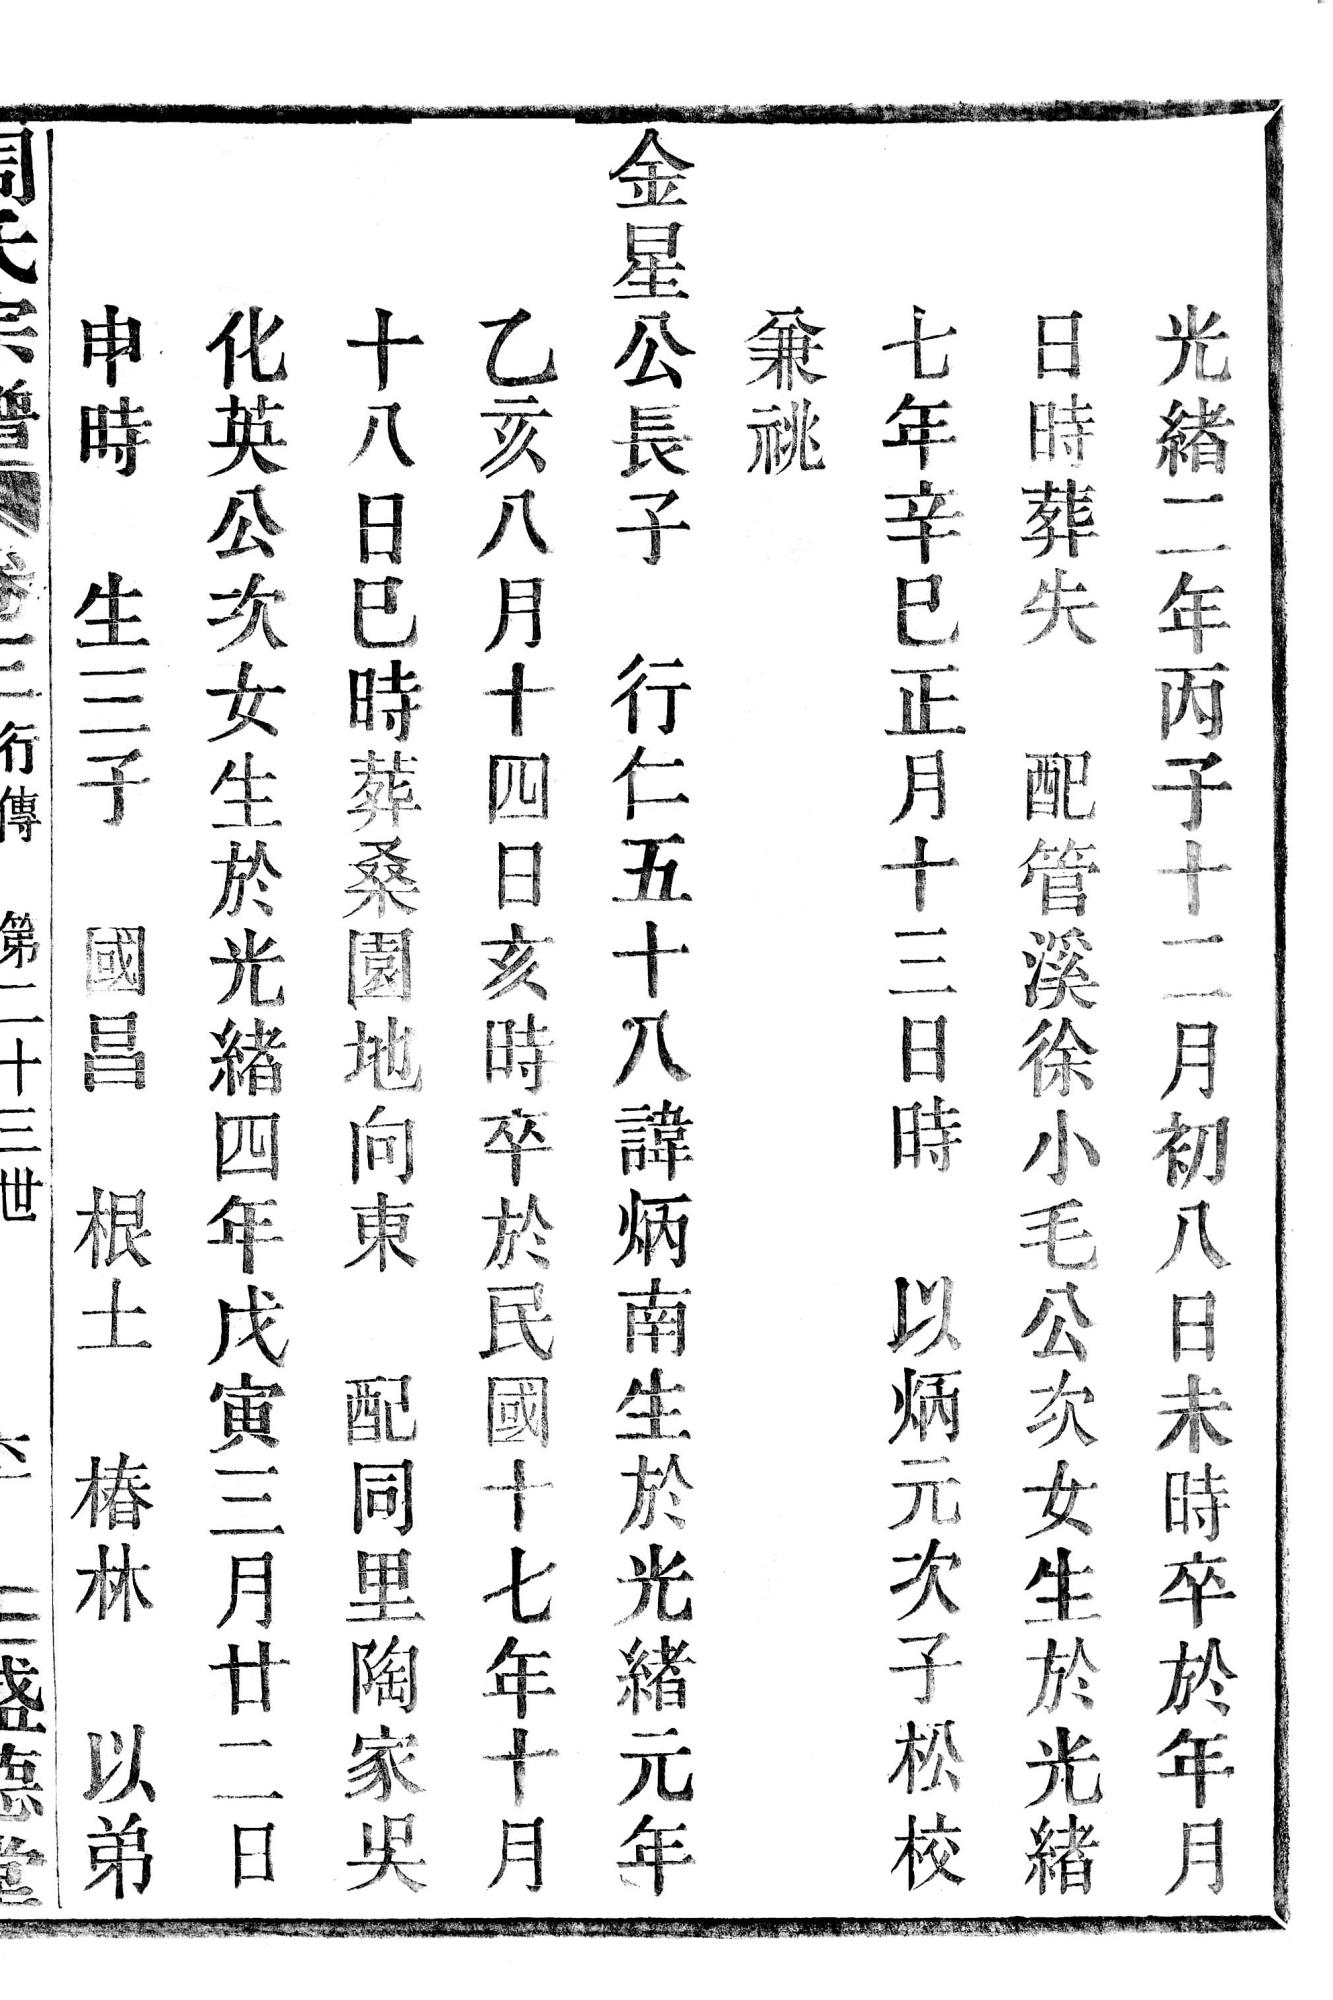 光緒二年丙子十二月初八日未時卒於年月
日時葬失　配管溪徐小毛公次女生於光緒
七年辛巳正月十三日時　以炳元次子松校
兼祧
金星公長子　行仁五十八諱炳南生於光緒元年
乙亥八月十四日亥時卒於民國十七年十月
十八日巳時葬桑園地向東　配同里陶家吳
化英公次女生於光緒四年戊寅三月廿二日
申時　生三子　國昌　根土　椿林　以弟
周氏宗譜　卷二　行傳　第二十三世　盛德堂